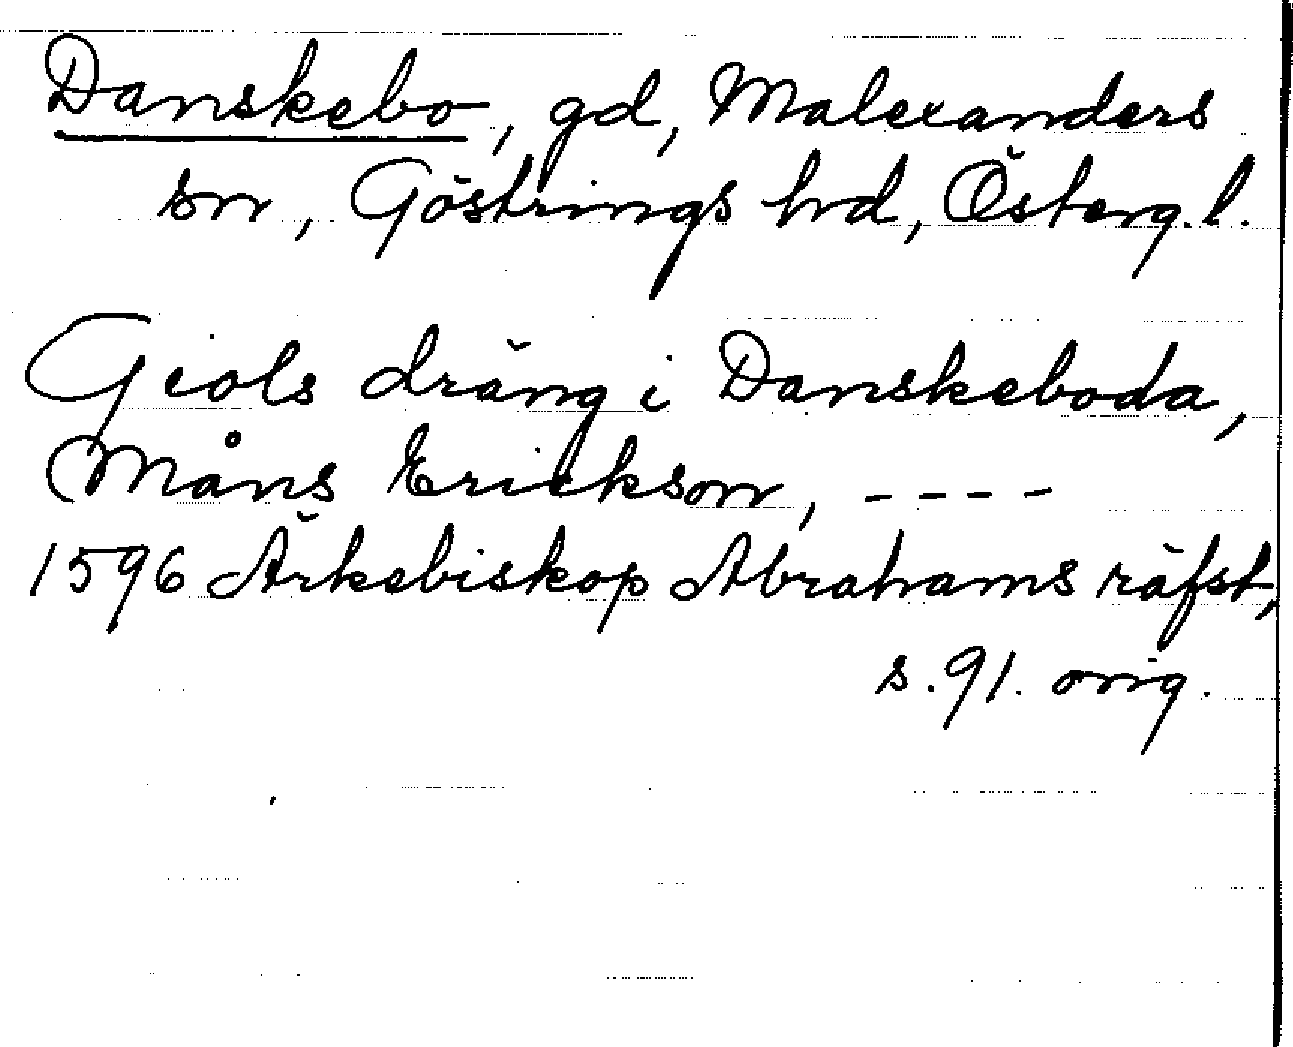 Danskebo, gd, Malexanders
sn, Göstrings hrd, Österg.l.
Giols dräng i Danskeboda,
Måns Erickson, ----
1596 Ärkebiskop Abrahams räfst,
s.91. orig.